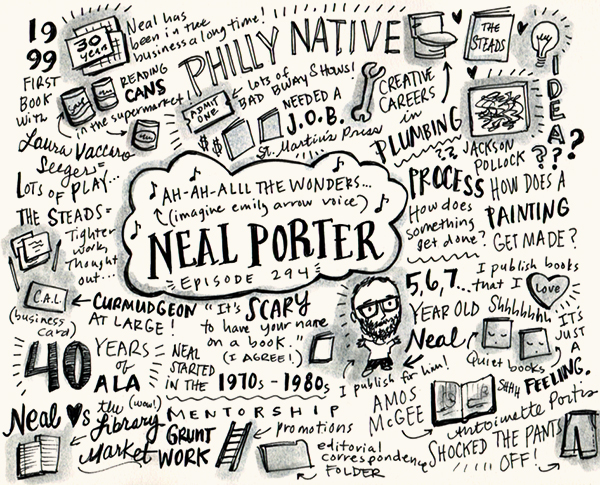 19
99
30
years
Neal has
been in the
business a long time!
FIRST
BOOK
with
Laura Vaccaro
Seeger
READING
CANS
in the supermarket!
PHILLY NATIVE
ADMIT
ONE
Lots of
BAD BWAY SHOWS!
$$
NEEDED A
J.O.B.
St. Martin's Press
CREATIVE
CAREERS
in
PLUMBING
THE
STEADS
IDEA
JACKSON
POLLOCK ???
??
LOTS OF PLAY...
THE STEADS=
Tighter
work,
Thought
out...
AH-AH-ALLL THE WONDERS...
(imagine emily arrow voice)
NEAL PORTER
EPISODE 294
PROCESS
How does
something
get done?
HOW DOES A
PAINTING
GET MADE?
C.A.L.
(business
card)
CURMUDGEON
AT LARGE!
"It's SCARY
to have your name
on a book."
(I AGREE!)
5,6,7...
YEAR OLD
Neal
I publish for him!
I publish books
that I
Love
Shhhhhhh
Quiet books
IT'S
JUST
A
FEELING.
40 YEARS
of
ALA
(wow!)
NEAL
STARTED
IN THE 1970s-1980s
Neal ♥s the
Library
Market
MENTORSHIP
GRUNT
WORK
promotions
editorial
correspondence
FOLDER
AMOS
McGEE
Shhh
Antoinette Portis
SHOCKED THE PANTS
OFF!